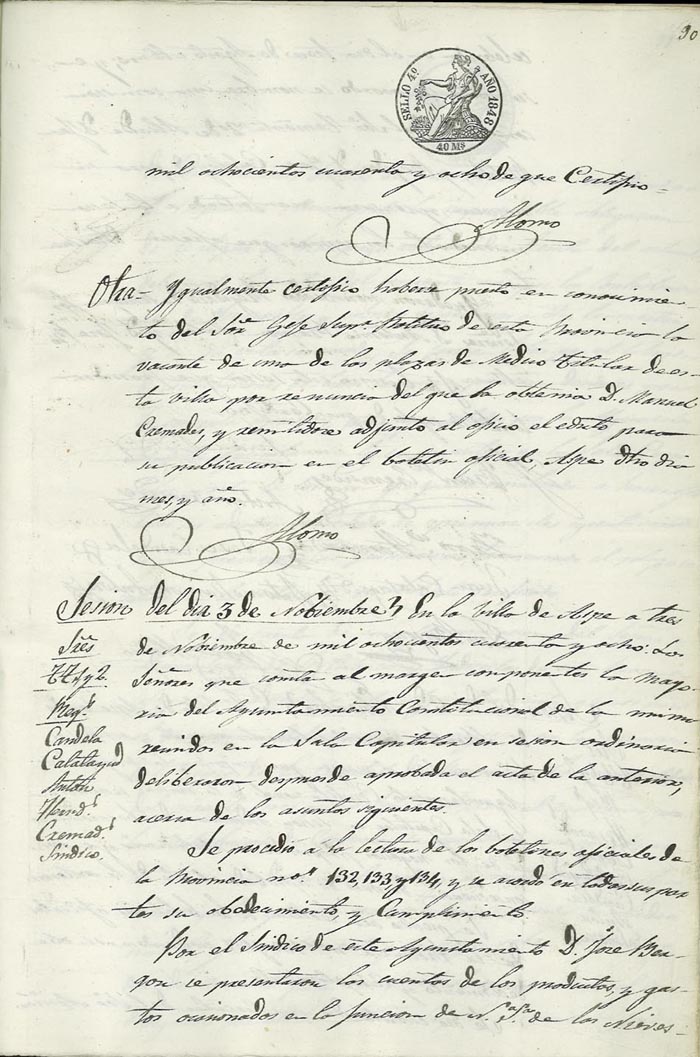 90
SELLO 4º AÑO 1848
40 Ms
mil ochocientos cuarenta y ocho de que Certifico =
Alomo
Otra = Ygualmente certifico haberse puesto en conocimie
to del Sor Gefe Supr Politico de esta Provincia la
vacante de una de las plazas de Medico titular de es-
ta villa por renuncia del que la obtenia D. Manuel
Cremades, y remitidose adjunto al oficio el edicto para
su publicacion en el boletin oficial, Aspe dho dia
mes, y año.
Alomo
Sesion del dia 3 de Nobiembre En la Villa de Aspe a tres
de Noviembre de mil ochocientos cuarenta y ocho: Los
Señores que consta al margen componentes la mayo
ria del Ayuntamiento Constitucional de la misma
reunidos en la Sala Capitular en sesion ordinaria
deliberaron despues de aprobada el acta de la anterior,
acerca de los asuntos siguientes.
Sres
Candela
Calatayud
Antón
Hernds
Cremads
Sindico.
Se procedió a la lectura de los boletines oficiales de
la Provincia nos 132, 133, y 134, y se acordó en todas sus par
tes su obedecimiento, y Cumplimiento.
Por el Sindico de este Ayuntamiento D. Jose Ber-
gon se presentaron las cuentas de los productos, y gas-
tos ocasionados en la funcion de N. Sra de las Nieves